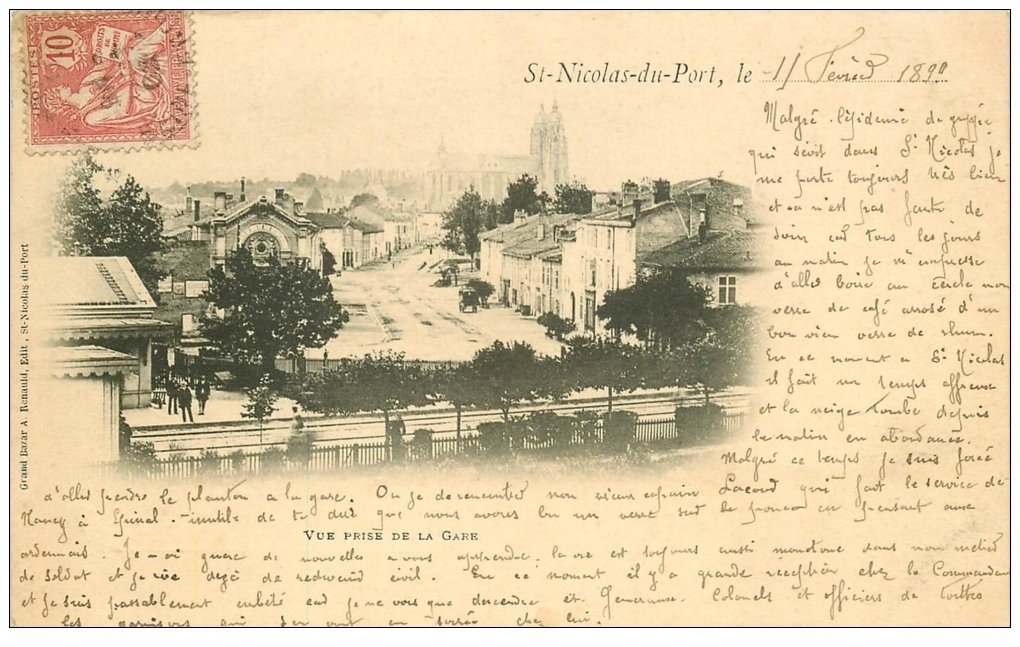 POSTES
10
DROITS DE L'HOMME
St-Nicolas-du-Port, le 11 Février 189
Malgré l'épidémie de grippe
qui sévit dans St Nicolas je
me porte toujours très bien
et ce n'est pas faute de
soin car tous les jours
au matin je m'empresse
d'aller boire au cercle mon
verre de café arrosé d'un
bon vieux verre de rhum.
En ce moment a St Nicolas
il fait un temps affreux
et la neige tombe depuis
le matin en abondance.
Malgré ce temps je suis forcé
d'aller prendre le planton a la gare. Ou je rencontre mon vieux copain Lacour qui fait le service de
Nancy à Epinal. inutile de te dire que nous avons bu un verre sur le pouce en pensant aux
VUE PRISE DE LA GARE
ardennais. Je n'ai guere de nouvelles a vous apprendre; la vie est toujours aussi monotone dans mon métier
de soldat et je rêve deja de redevenir civil. En ce moment il y a grande reception chez le Commandant
et je suis passablement embêté car je ne vois que descendre et Generaux. Colonels et officiers de toutes
les garnisons qui s'en vont en soirée chez lui.
Grand Bazar A. Renauld, Edit., St-Nicolas du-Port